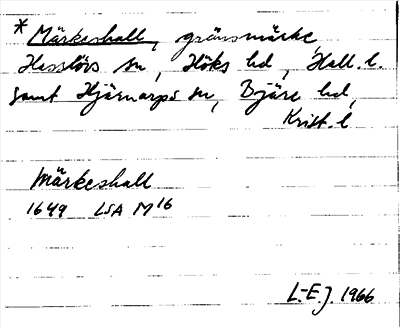 * Märkeshall, gränsmärke,
Hasslövs sn, Höks hd, Hall. l.
samt Hjärnarps sn, Bjäre hd,
Krist. l
Märkeshall
1649 LSA M16
L-E.J. 1966